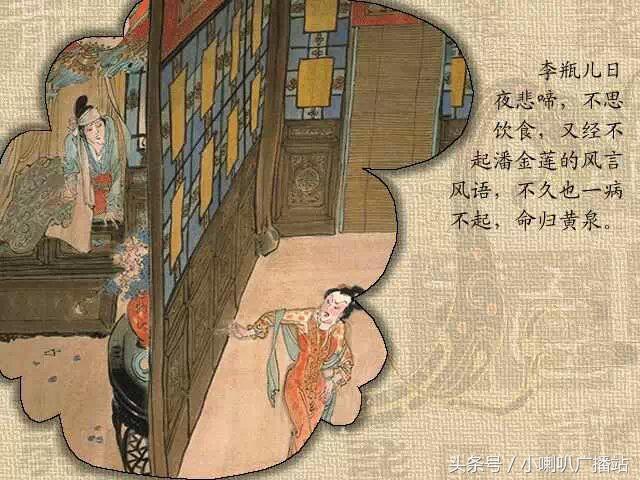 李瓶儿日
夜悲啼，不思
饮食，又经不
起潘金莲的风言
风语，不久也一病
不起，命归黄泉。
头条号／小喇叭广播站